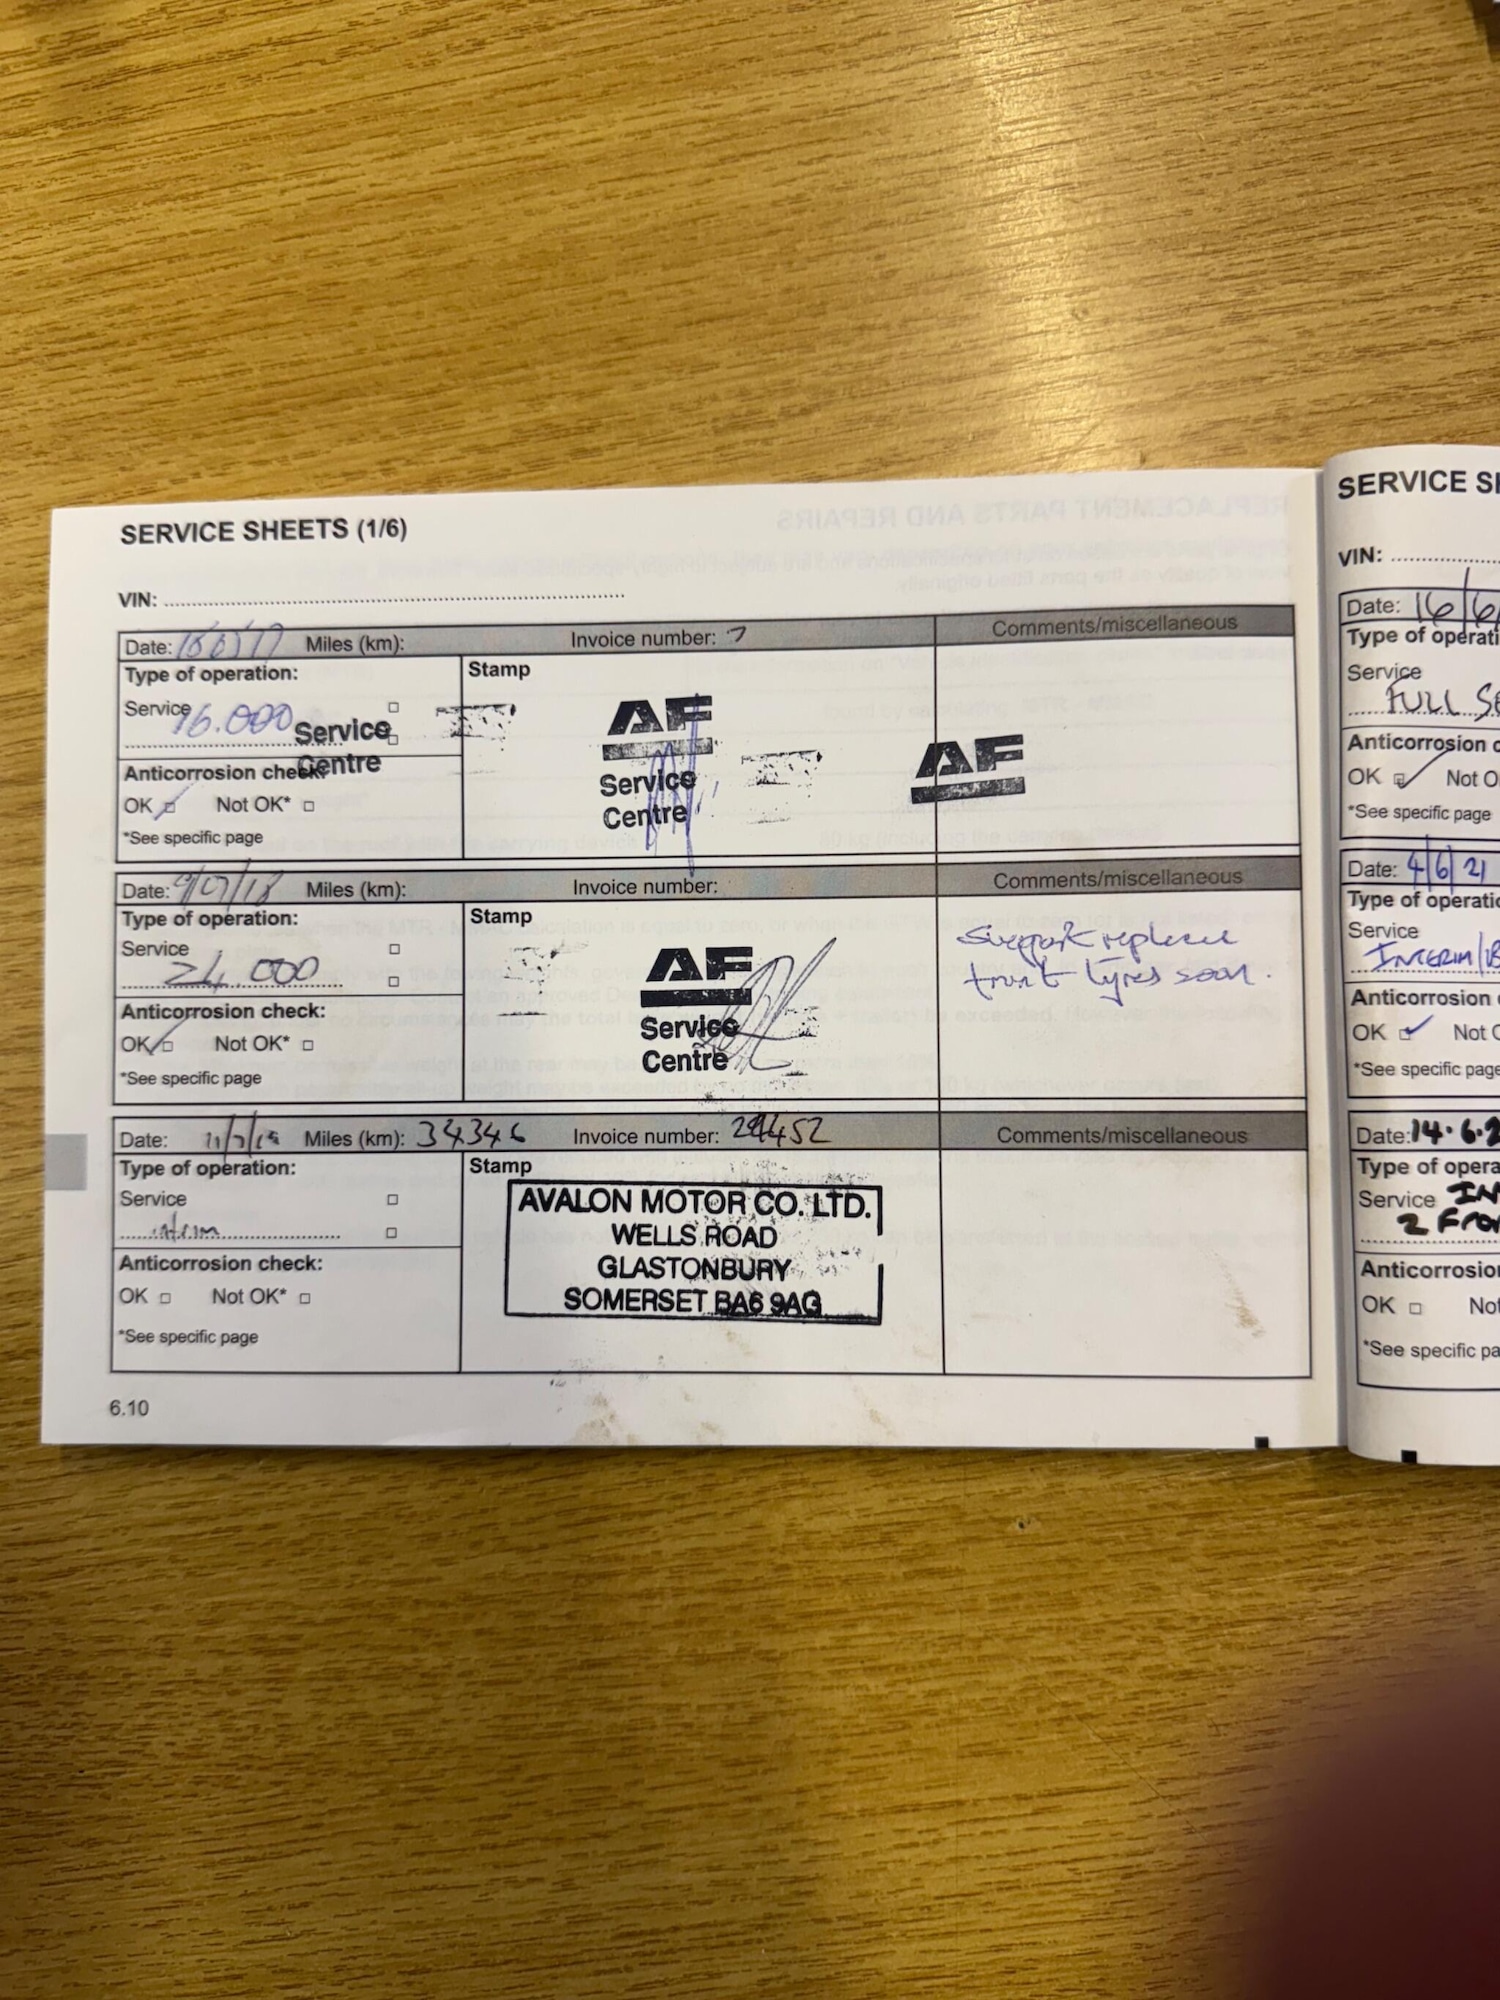 SERVICE SHEETS (1/6)
VIN:
Date: Miles (km): Invoice number: Comments/miscellaneous
Type of operation: Stamp
Service
16.000
Service
Centre
Anticorrosion check:
OK Not OK*
*See specific page
AF
Service
Centre
AF
Date: 9/07/18 Miles (km): Invoice number: Comments/miscellaneous
Type of operation: Stamp
Service
24.000
Anticorrosion check:
OK Not OK*
*See specific page
AF
Service
Centre
replace
front tyres soon.
Date: Miles (km): 34346 Invoice number: Comments/miscellaneous
Type of operation: Stamp
Service
Anticorrosion check:
OK Not OK*
*See specific page
AVALON MOTOR CO. LTD.
WELLS ROAD
GLASTONBURY
SOMERSET BA6 9AG
6.10
SERVICE
VIN:
Date: 16/6
Type of
Service
FULL
Anticorrosion
OK Not
*See specific page
Date: 4/6/21
Type of
Service
INTERIM
Anticorrosion
OK Not
*See specific page
Date: 14.6.
Type of
Service
2
OK
*See specific